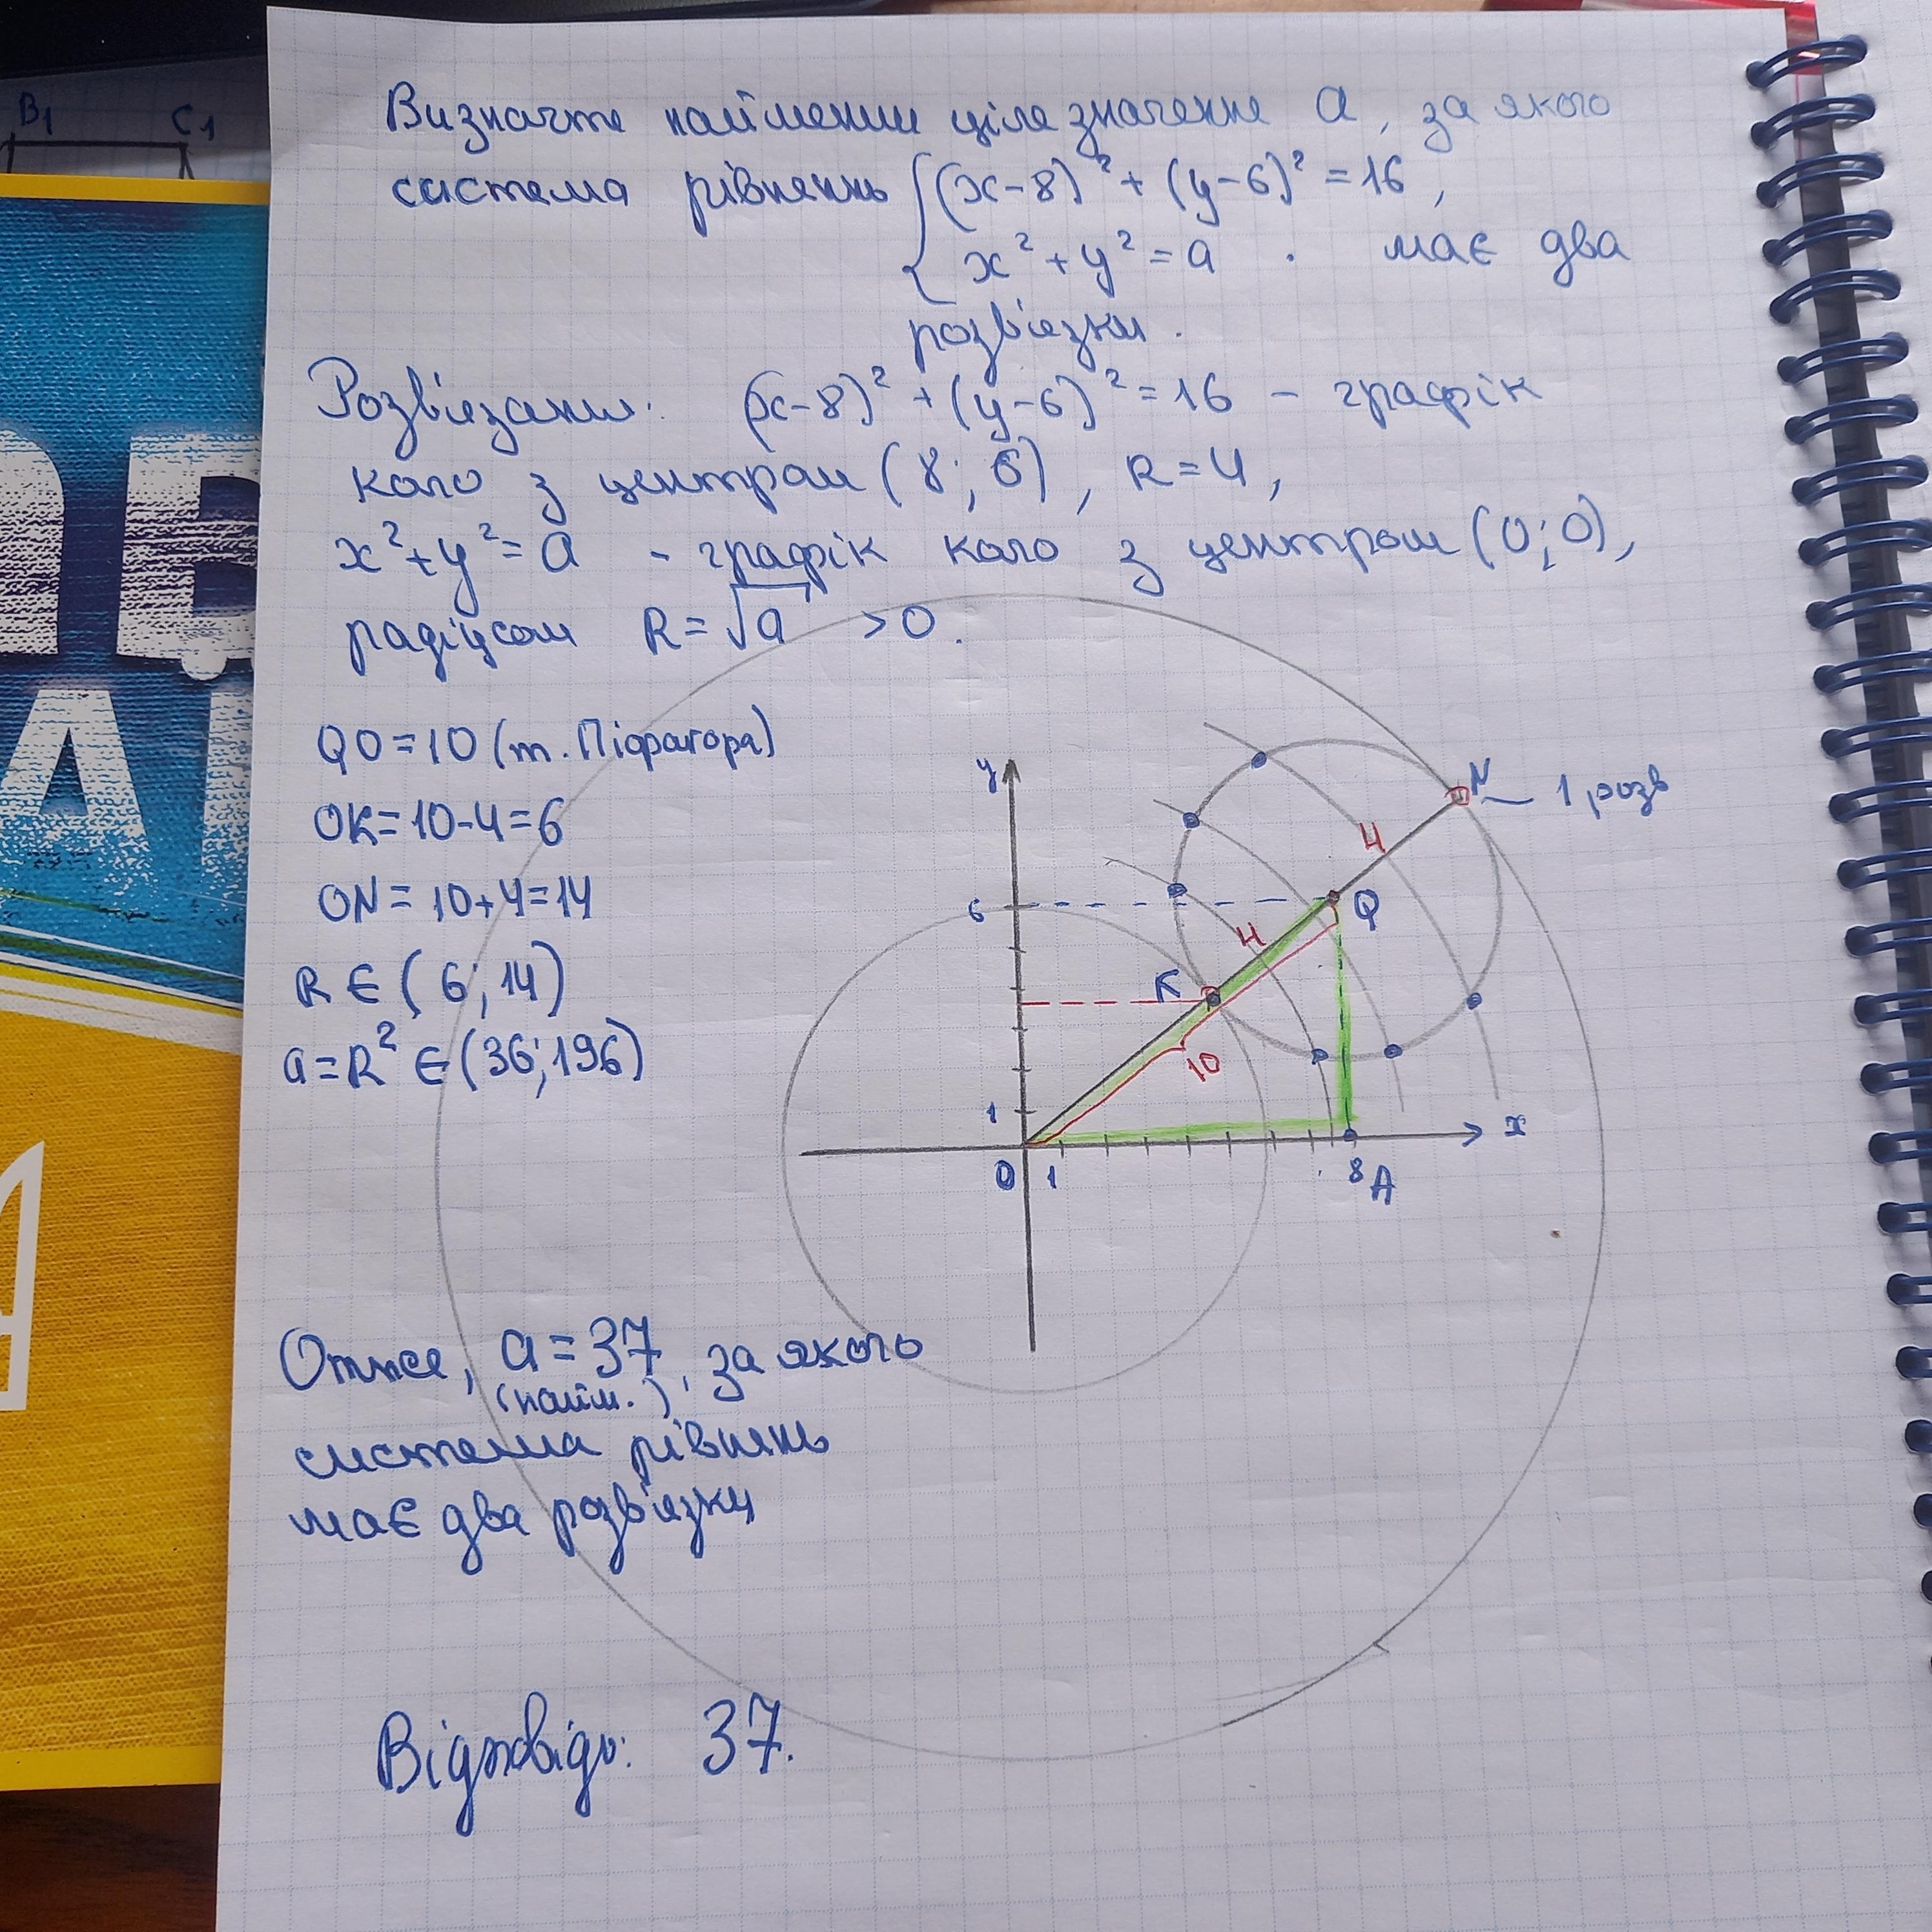 Визначте найменше ціле значення a, за якого
система рівнянь { (x-8)² + (y-6)² = 16,
x² + y² = a . має два
розв'язки.
Розв'язання: (x-8)² + (y-6)² = 16 - графік
коло з центром (8; 6), R = 4,
x² + y² = a - графік коло з центром (0; 0),
радіусом R = √a > 0.
QO = 10 (т. Піфагора)
OK = 10-4 = 6
ON = 10+4 = 14
R ∈ (6; 14)
a = R² ∈ (36; 196)
y
N — 1 розв
4
6
Q
4
K
10
1
x
0 1
8 A
Отже, a = 37, за якого
(найм.)
система рівнянь
має два розв'язки
Відповідь: 37.
B1 C1